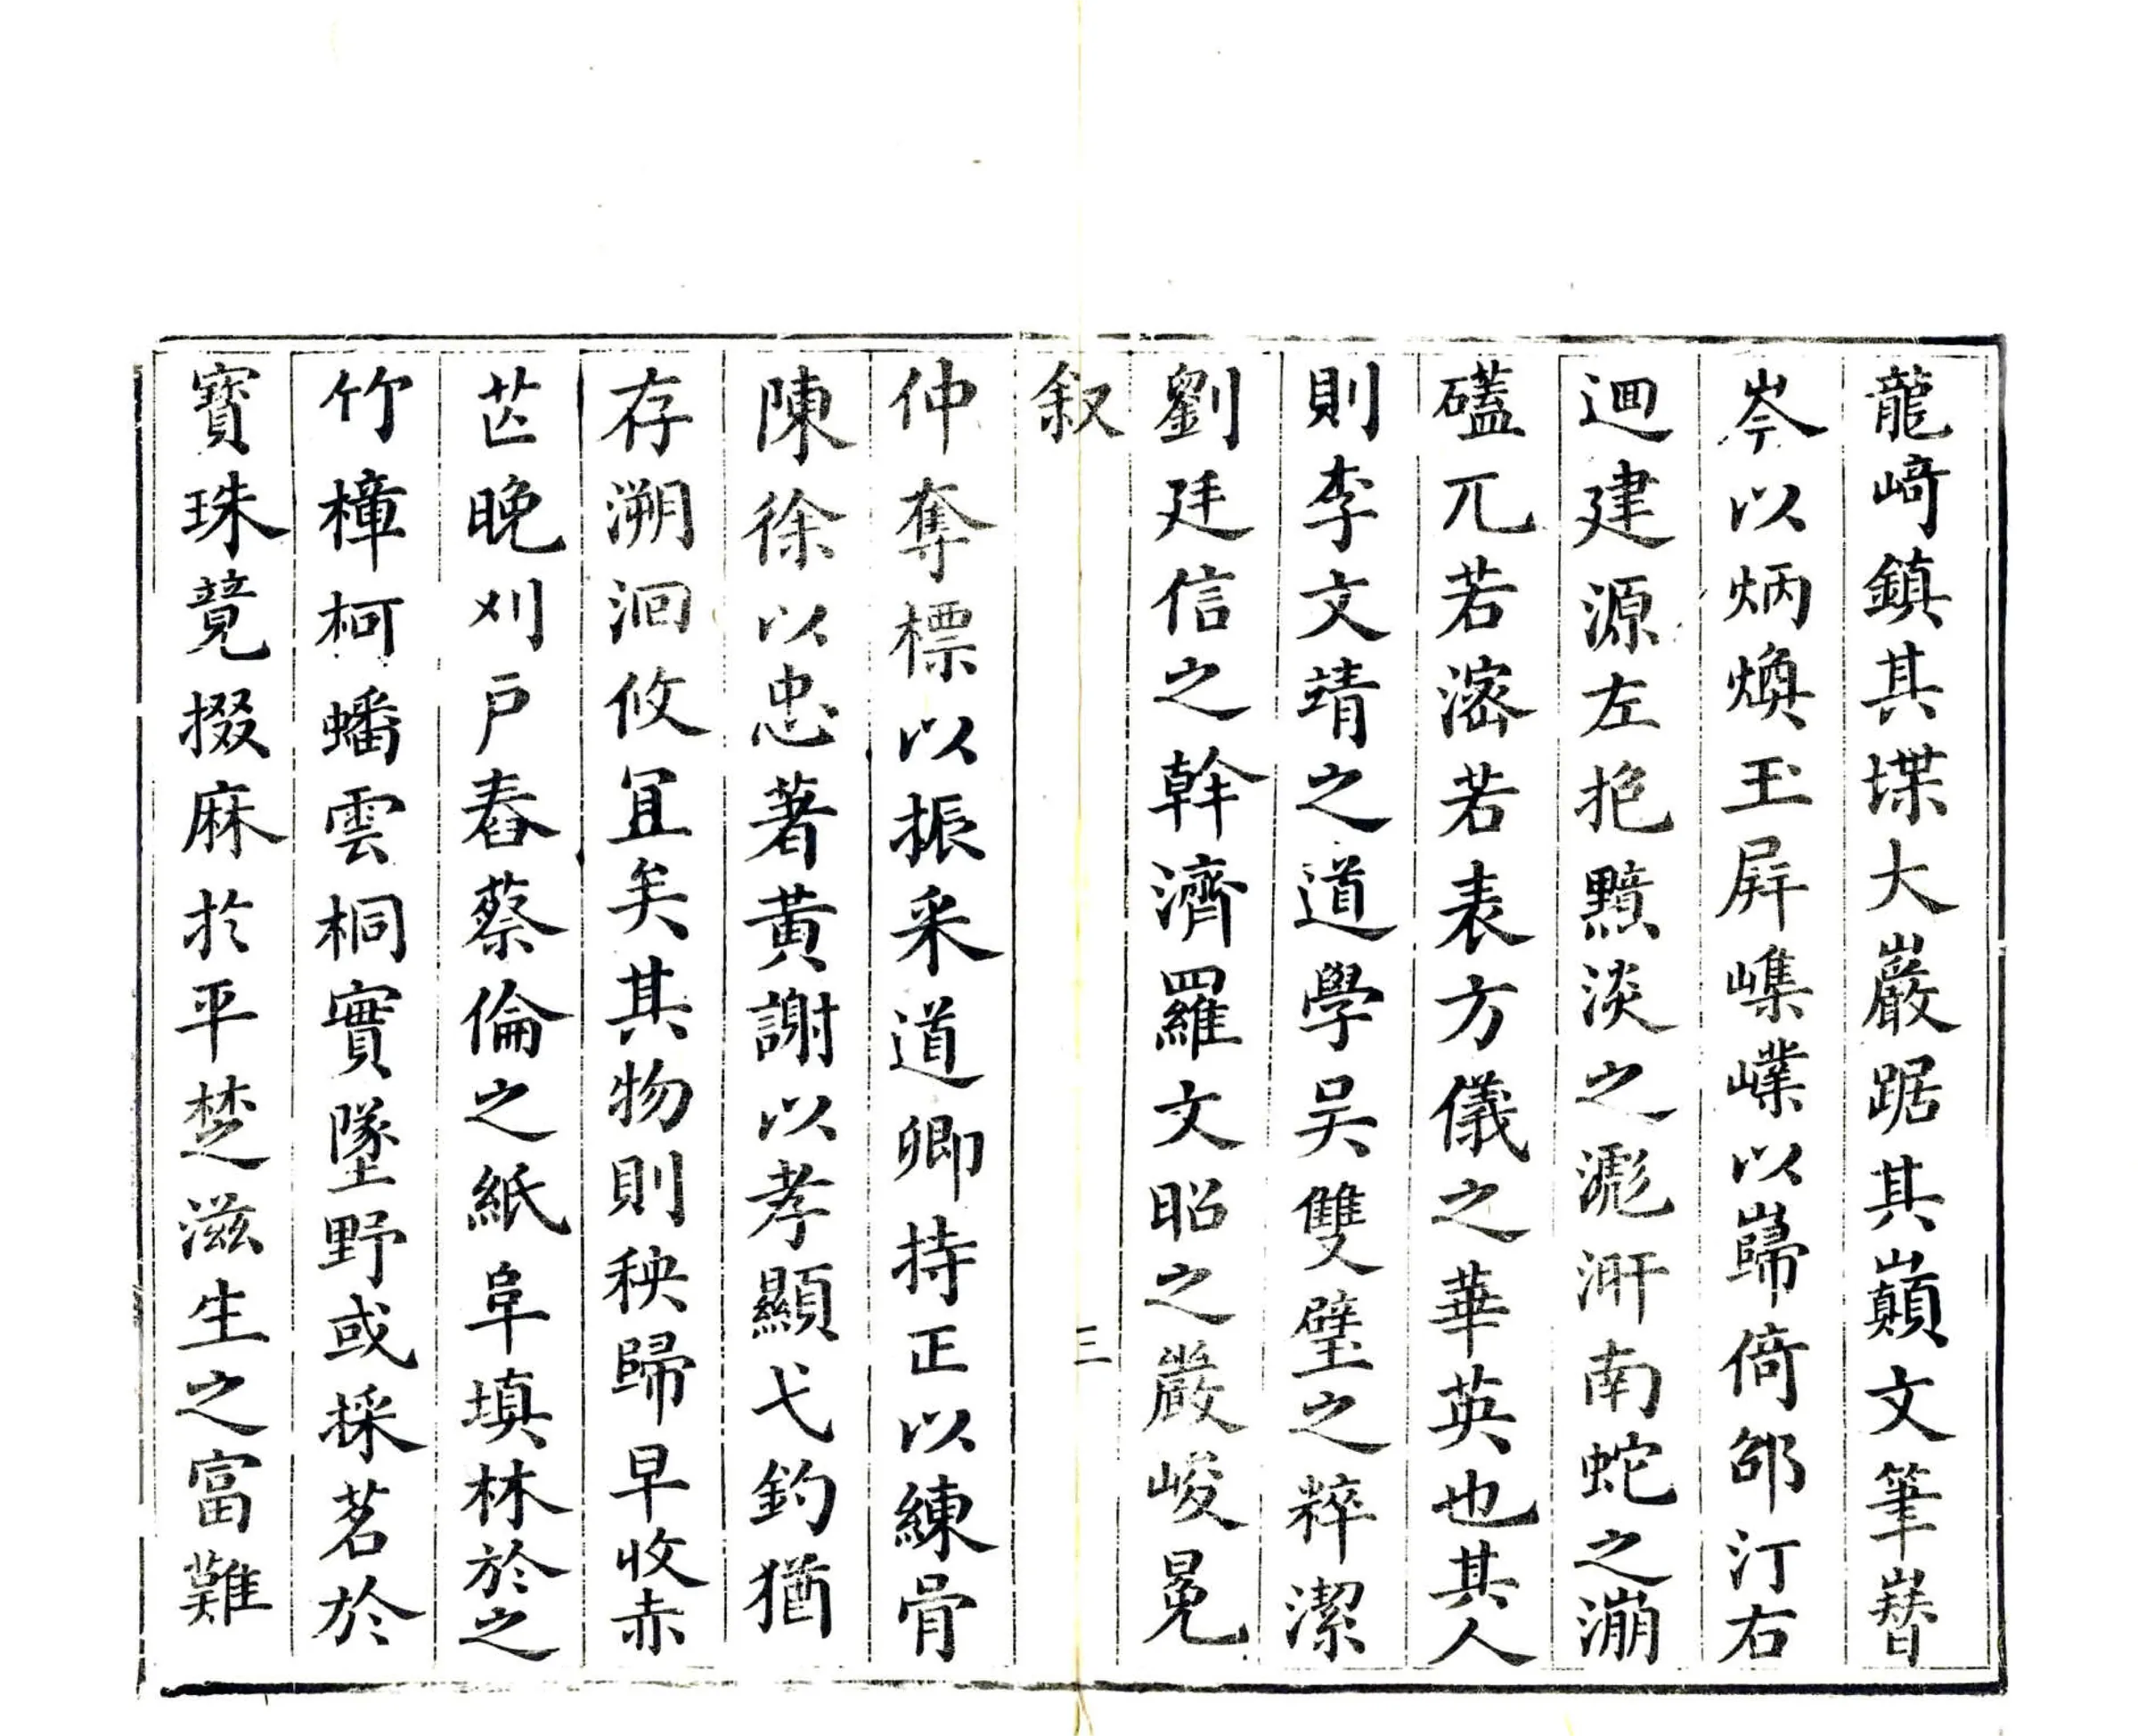 龍﨑鎮其堞大巖踞其巔文筆嶜
岑以炳煥玉屏嶫以巋倚邵汀右
迴建源左挹黯淡之漰南蛇之漰
礚兀若滵若表方儀之華英也其人
則李文靖之道學吴雙璧之粹潔
劉廷信之幹濟羅文昭之嚴峻冕
叙
三
仲奪標以振采道卿持正以練骨
陳徐以忠著黃謝以孝顯弋釣猶
存溯洄攸冝矣其物則秧歸早收赤
芑晚刈戶舂蔡倫之紙阜填林於之
竹樟柯蟠雲桐實墜野或採茗於
寶珠競掇麻於平楚滋生之富難